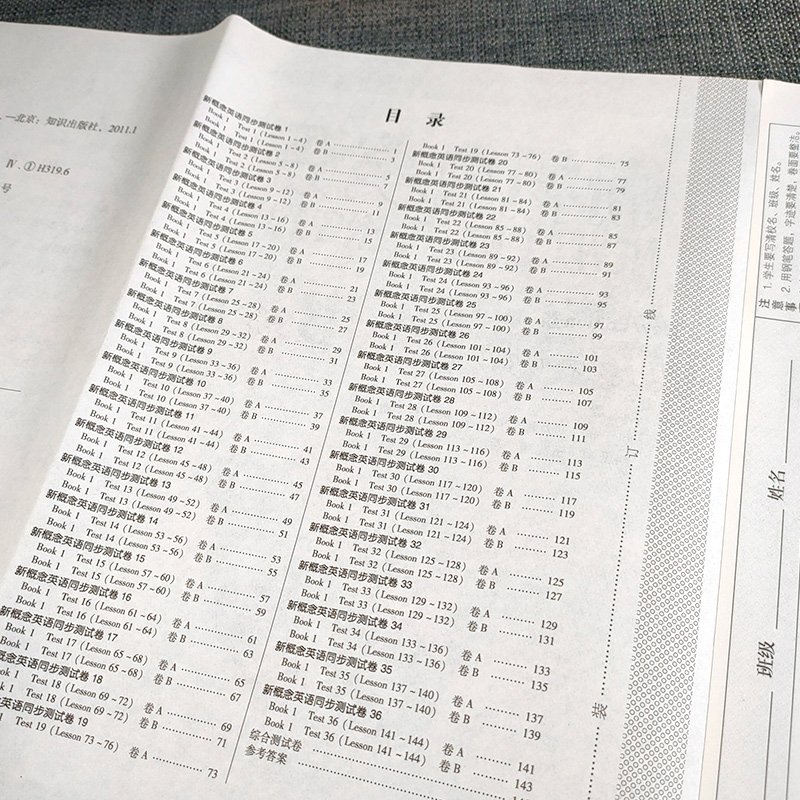 一北京：知识出版社，2011.1
Ⅳ.①H319.6
号
目 录
新概念英语同步测试卷 1
Book 1 Test 1 (Lesson 1~4) 卷 A ………… 1
Book 1 Test 1 (Lesson 1~4) 卷 B ………… 3
新概念英语同步测试卷 2
Book 1 Test 2 (Lesson 5~8) 卷 A ………… 5
Book 1 Test 2 (Lesson 5~8) 卷 B ………… 7
新概念英语同步测试卷 3
Book 1 Test 3 (Lesson 9~12) 卷 A ………… 9
Book 1 Test 3 (Lesson 9~12) 卷 B ………… 11
新概念英语同步测试卷 4
Book 1 Test 4 (Lesson 13~16) 卷 A ………… 13
Book 1 Test 4 (Lesson 13~16) 卷 B ………… 15
新概念英语同步测试卷 5
Book 1 Test 5 (Lesson 17~20) 卷 A ………… 17
Book 1 Test 5 (Lesson 17~20) 卷 B ………… 19
新概念英语同步测试卷 6
Book 1 Test 6 (Lesson 21~24) 卷 A ………… 21
Book 1 Test 6 (Lesson 21~24) 卷 B ………… 23
新概念英语同步测试卷 7
Book 1 Test 7 (Lesson 25~28) 卷 A ………… 25
Book 1 Test 7 (Lesson 25~28) 卷 B ………… 27
新概念英语同步测试卷 8
Book 1 Test 8 (Lesson 29~32) 卷 A ………… 29
Book 1 Test 8 (Lesson 29~32) 卷 B ………… 31
新概念英语同步测试卷 9
Book 1 Test 9 (Lesson 33~36) 卷 A ………… 33
Book 1 Test 9 (Lesson 33~36) 卷 B ………… 35
新概念英语同步测试卷 10
Book 1 Test 10 (Lesson 37~40) 卷 A ………… 37
Book 1 Test 10 (Lesson 37~40) 卷 B ………… 39
新概念英语同步测试卷 11
Book 1 Test 11 (Lesson 41~44) 卷 A ………… 41
Book 1 Test 11 (Lesson 41~44) 卷 B ………… 43
新概念英语同步测试卷 12
Book 1 Test 12 (Lesson 45~48) 卷 A ………… 45
Book 1 Test 12 (Lesson 45~48) 卷 B ………… 47
新概念英语同步测试卷 13
Book 1 Test 13 (Lesson 49~52) 卷 A ………… 49
Book 1 Test 13 (Lesson 49~52) 卷 B ………… 51
新概念英语同步测试卷 14
Book 1 Test 14 (Lesson 53~56) 卷 A ………… 53
Book 1 Test 14 (Lesson 53~56) 卷 B ………… 55
新概念英语同步测试卷 15
Book 1 Test 15 (Lesson 57~60) 卷 A ………… 57
Book 1 Test 15 (Lesson 57~60) 卷 B ………… 59
新概念英语同步测试卷 16
Book 1 Test 16 (Lesson 61~64) 卷 A ………… 61
Book 1 Test 16 (Lesson 61~64) 卷 B ………… 63
新概念英语同步测试卷 17
Book 1 Test 17 (Lesson 65~68) 卷 A ………… 65
Book 1 Test 17 (Lesson 65~68) 卷 B ………… 67
概念英语同步测试卷 18
Book 1 Test 18 (Lesson 69~72) 卷 A ………… 69
Test 18 (Lesson 69~72) 卷 B ………… 71
念英语同步测试卷 19
1 Test 19 (Lesson 73~76) 卷 A ………… 73
Book 1 Test 19 (Lesson 73~76) 卷 B ………… 75
新概念英语同步测试卷 20
Book 1 Test 20 (Lesson 77~80) 卷 A ………… 77
Book 1 Test 20 (Lesson 77~80) 卷 B ………… 79
新概念英语同步测试卷 21
Book 1 Test 21 (Lesson 81~84) 卷 A ………… 81
Book 1 Test 21 (Lesson 81~84) 卷 B ………… 83
新概念英语同步测试卷 22
Book 1 Test 22 (Lesson 85~88) 卷 A ………… 85
Book 1 Test 22 (Lesson 85~88) 卷 B ………… 87
新概念英语同步测试卷 23
Book 1 Test 23 (Lesson 89~92) 卷 A ………… 89
Book 1 Test 23 (Lesson 89~92) 卷 B ………… 91
新概念英语同步测试卷 24
Book 1 Test 24 (Lesson 93~96) 卷 A ………… 93
Book 1 Test 24 (Lesson 93~96) 卷 B ………… 95
新概念英语同步测试卷 25
Book 1 Test 25 (Lesson 97~100) 卷 A ………… 97
Book 1 Test 25 (Lesson 97~100) 卷 B ………… 99
新概念英语同步测试卷 26
Book 1 Test 26 (Lesson 101~104) 卷 A ………… 101
Book 1 Test 26 (Lesson 101~104) 卷 B ………… 103
新概念英语同步测试卷 27
Book 1 Test 27 (Lesson 105~108) 卷 A ………… 105
Book 1 Test 27 (Lesson 105~108) 卷 B ………… 107
新概念英语同步测试卷 28
Book 1 Test 28 (Lesson 109~112) 卷 A ………… 109
Book 1 Test 28 (Lesson 109~112) 卷 B ………… 111
新概念英语同步测试卷 29
Book 1 Test 29 (Lesson 113~116) 卷 A ………… 113
Book 1 Test 29 (Lesson 113~116) 卷 B ………… 115
新概念英语同步测试卷 30
Book 1 Test 30 (Lesson 117~120) 卷 A ………… 117
Book 1 Test 30 (Lesson 117~120) 卷 B ………… 119
新概念英语同步测试卷 31
Book 1 Test 31 (Lesson 121~124) 卷 A ………… 121
Book 1 Test 31 (Lesson 121~124) 卷 B ………… 123
新概念英语同步测试卷 32
Book 1 Test 32 (Lesson 125~128) 卷 A ………… 125
Book 1 Test 32 (Lesson 125~128) 卷 B ………… 127
新概念英语同步测试卷 33
Book 1 Test 33 (Lesson 129~132) 卷 A ………… 129
Book 1 Test 33 (Lesson 129~132) 卷 B ………… 131
新概念英语同步测试卷 34
Book 1 Test 34 (Lesson 133~136) 卷 A ………… 133
Book 1 Test 34 (Lesson 133~136) 卷 B ………… 135
新概念英语同步测试卷 35
Book 1 Test 35 (Lesson 137~140) 卷 A ………… 137
Book 1 Test 35 (Lesson 137~140) 卷 B ………… 139
新概念英语同步测试卷 36
Book 1 Test 36 (Lesson 141~144) 卷 A ………… 141
Book 1 Test 36 (Lesson 141~144) 卷 B ………… 143
综合测试卷 …………
参考答案 …………
线
订
装
注意事
1. 学生要写清校名、班级、姓名。
2. 用钢笔答题，字迹要清楚，卷面要整洁。
姓名
班级